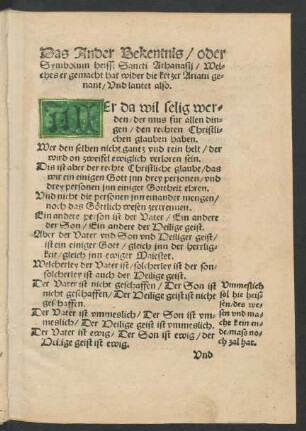 Das Ander Bekentnis / oder
Symbolum heisst Sancti Athanasij / Wel-
ches er gemacht hat wider die ketzer Ariani ge-
nant / Vnd lautet also.
WEr da wil selig wer-
den / der mus für allen din-
gen / den rechten Christli-
chen glauben haben.
Wer den selben nicht gantz vnd rein helt / der
wird on zweifel ewiglich verloren sein.
Dis ist aber der rechte Christliche glaube / das
wir ein einigen Gott jnn drey personen / vnd
drey personen jnn einiger Gottheit ehren.
Vnd nicht die personen jnn einander mengen /
noch das Göttlich wesen zertrennen.
Ein andere person ist der Vater / Ein andere
der Son / Ein andere der Heilige geist.
Aber der Vater vnd Son vnd Heiliger geist /
ist ein einiger Gott / gleich jnn der herrlig-
keit / gleich jnn ewiger Maiestet.
Welcherley der Vater ist / solcherley ist der son /
solcherley ist auch der Heilige geist.
Der Vater ist nicht geschaffen / Der Son ist
nicht geschaffen / Der Heilige geist ist nicht
geschaffen.
Der Vater ist vnmeslich / Der Son ist vn-
meslich / Der Heilige geist ist vnmeslich.
Der Vater ist ewig / Der Son ist ewig / der
Heilige geist ist ewig.
Vnmeslich
sol hie heis-
sen / des we-
sen vnd ma-
cht kein en-
de / mass no-
ch zal hat.
Vnd